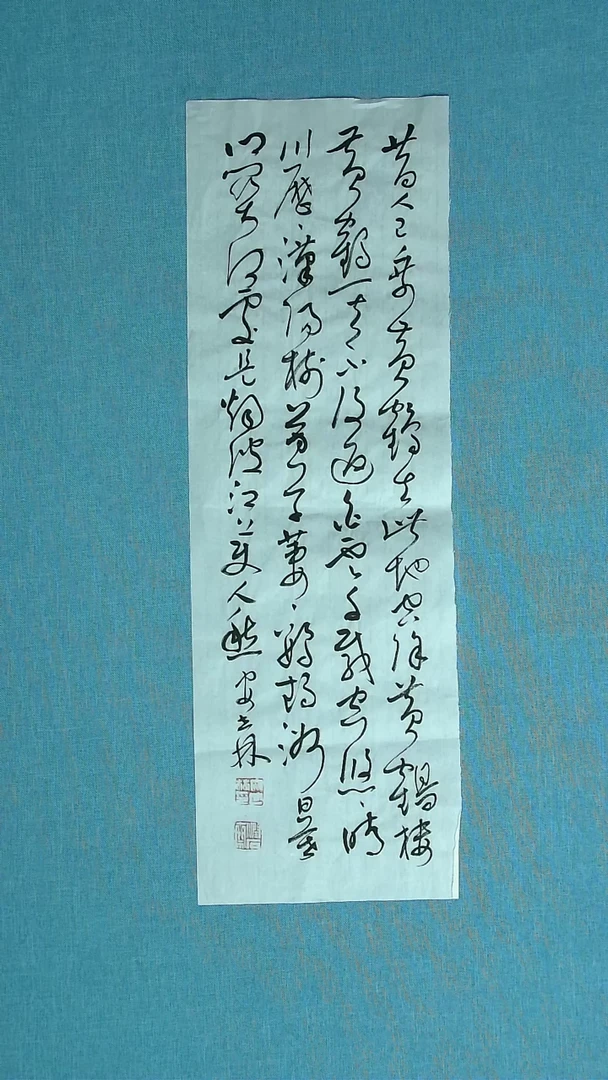 昔人已乘黃鶴去此地空餘黃鶴樓
黃鶴一去不復返白雲千載空悠悠晴
川歷歷漢陽樹芳草萋萋鸚鵡洲日暮
鄉關何處是煙波江上使人愁